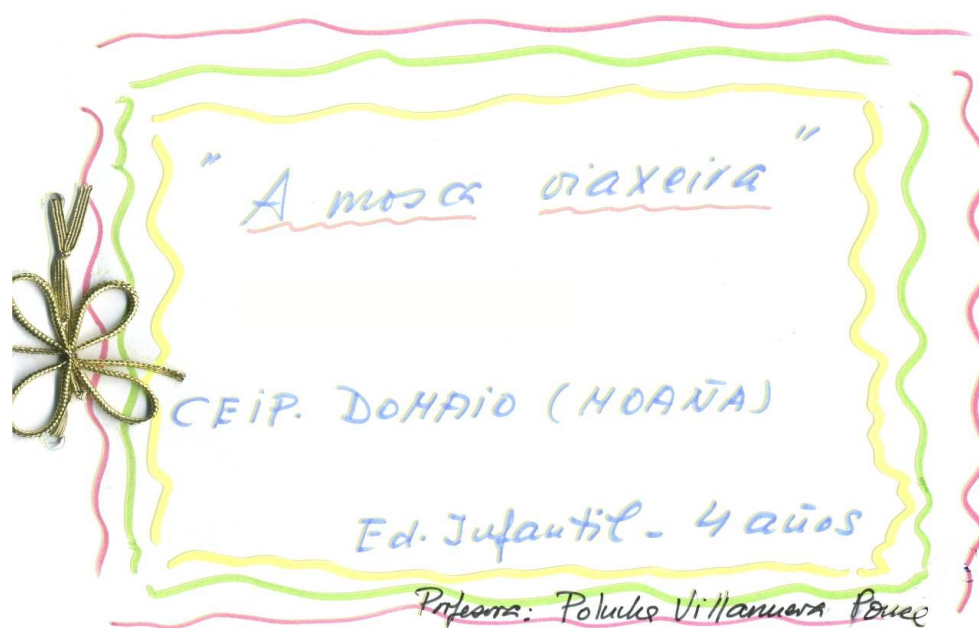 " A mosca viaxeira "
CEIP. DOMAIO (MOAÑA)
Ed. Infantil - 4 años
Profesora: Poluca Villanueva Ponce